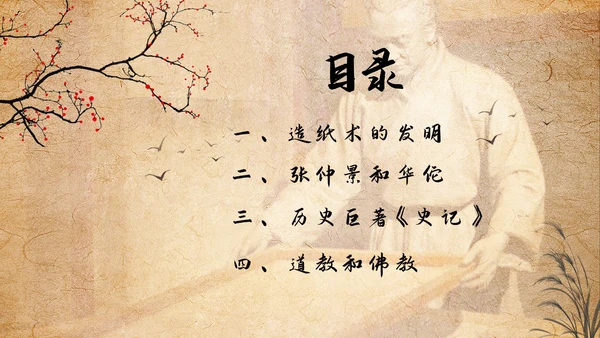 目录
一、造纸术的发明
二、张仲景和华佗
三、历史巨著《史记》
四、道教和佛教